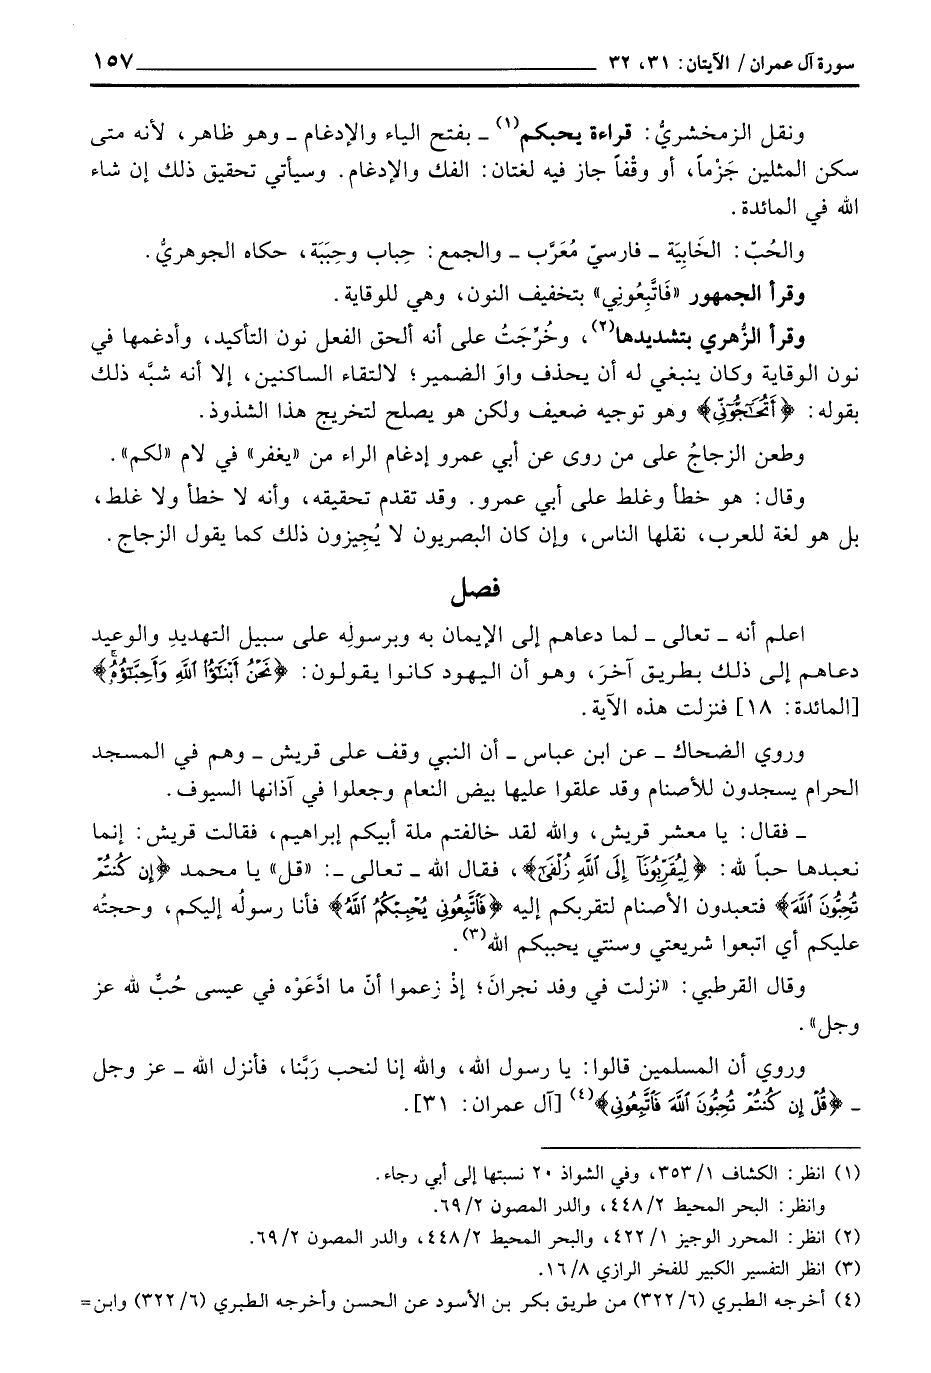 سورة آل عمران / الآيتان: ٣١، ٣٢ ١٥٧
ونقل الزمخشريُّ: قراءة يحبكم(١) ـ بفتح الياء والإدغام ـ وهو ظاهر، لأنه متى
سكن المثلين جَزْماً، أو وقْفاً جاز فيه لغتان: الفك والإدغام. وسيأتي تحقيق ذلك إن شاء
الله في المائدة.
والحُبّ: الخَابِيَة ـ فارسيّ مُعَرَّب ـ والجمع: حِباب وحِبَبَة، حكاه الجوهريُّ.
وقرأ الجمهور «فَاتَّبِعُونِي» بتخفيف النون، وهي للوقاية.
وقرأ الزُّهري بتشديدها(٢)، وخُرِّجَتُ على أنه ألحق الفعل نون التأكيد، وأدغمها في
نون الوقاية وكان ينبغي له أن يحذف واوَ الضمير؛ لالتقاء الساكنين، إلا أنه شبَّه ذلك
بقوله: ﴿أَتُحَٰٓجُّوٓنِّي﴾ وهو توجيه ضعيف ولكن هو يصلح لتخريج هذا الشذوذ.
وطعن الزجاجُ على من روى عن أبي عمرو إدغام الراء من «يغفر» في لام «لكم».
وقال: هو خطأ وغلط على أبي عمرو. وقد تقدم تحقيقه، وأنه لا خطأ ولا غلط،
بل هو لغة للعرب، نقلها الناس، وإن كان البصريون لا يُجِيزون ذلك كما يقول الزجاج.
فصل
اعلم أنه ـ تعالى ـ لما دعاهم إلى الإيمان به وبرسولِه على سبيل التهديدِ والوعيد
دعاهم إلى ذلك بطريق آخرَ، وهو أن اليهود كانوا يقولون: ﴿نَحْنُ أَبْنَٰٓؤُا۟ ٱللَّهِ وَأَحِبَّٰٓؤُهُۥ﴾
[المائدة: ١٨] فنزلت هذه الآية.
وروي الضحاك ـ عن ابن عباس ـ أن النبي وقف على قريش ـ وهم في المسجد
الحرام يسجدون للأصنام وقد علقوا عليها بيض النعام وجعلوا في آذانها السيوف.
ـ فقال: يا معشر قريش، والله لقد خالفتم ملة أبيكم إبراهيم، فقالت قريش: إنما
نعبدها حباً لله: ﴿لِيُقَرِّبُونَآ إِلَى ٱللَّهِ زُلْفَىٰٓ﴾، فقال الله ـ تعالى ـ: «قل» يا محمد ﴿إِن كُنتُمْ
تُحِبُّونَ ٱللَّهَ﴾ فتعبدون الأصنام لتقربكم إليه ﴿فَٱتَّبِعُونِي يُحْبِبْكُمُ ٱللَّهُ﴾ فأنا رسولُه إليكم، وحجتُه
عليكم أي اتبعوا شريعتي وسنتي يحببكم الله(٣).
وقال القرطبي: «نزلت في وفد نجرانَ؛ إذْ زعموا أنّ ما ادَّعَوْه في عيسى حُبٌّ لله عز
وجل».
وروي أن المسلمين قالوا: يا رسول الله، والله إنا لنحب رَبَّنا، فأنزل الله ـ عز وجل
ـ ﴿قُلْ إِن كُنتُمْ تُحِبُّونَ ٱللَّهَ فَٱتَّبِعُونِي﴾(٤) [آل عمران: ٣١].
(١) انظر: الكشاف ٣٥٣/١، وفي الشواذ ٢٠ نسبتها إلى أبي رجاء.
وانظر: البحر المحيط ٤٤٨/٢، والدر المصون ٦٩/٢.
(٢) انظر: المحرر الوجيز ٤٢٢/١، والبحر المحيط ٤٤٨/٢، والدر المصون ٦٩/٢.
(٣) انظر التفسير الكبير للفخر الرازي ١٦/٨.
(٤) أخرجه الطبري (٣٢٢/٦) من طريق بكر بن الأسود عن الحسن وأخرجه الطبري (٣٢٢/٦) وابن=